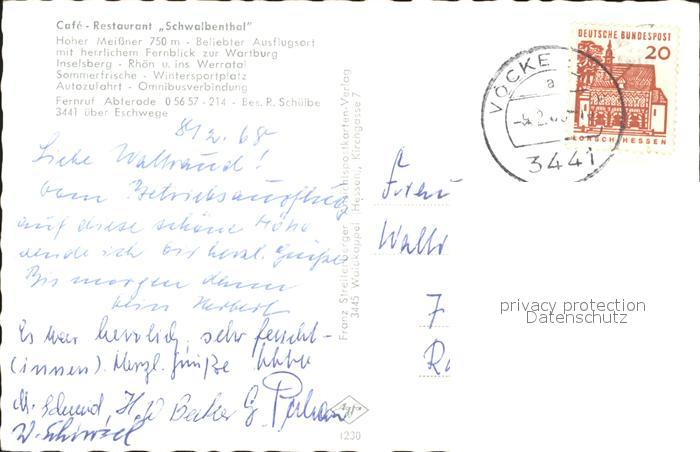 Café - Restaurant „Schwalbenthal"
Hoher Meißner 750 m - Beliebter Ausflugsort
mit herrlichem Fernblick zur Wartburg
Inselsberg - Rhön u. ins Werratal
Sommerfrische - Wintersportplatz
Autozufahrt - Omnibusverbindung
Fernruf Abterode 0 56 57 - 214 - Bes. R. Schülbe
3441 über Eschwege
Liebe Waltraud!
vom Betriebsausflug
auf diese schöne Höhe
sende ich Dir herzl. Grüße
Bis morgen dann
Dein Herbert
Es war herrlich, sehr feucht-
(innen). Herzl. Grüße
H. Becker
Franz Streitenberger - Ansichtspostkarten-Verlag
3445 Waldkappel (Hessen), Kirchgasse 7
Agfa
1230
DEUTSCHE BUNDESPOST
20
LORSCH/HESSEN
VÖCKE
a
3441
Frau
Waltr
7
privacy protection
Datenschutz